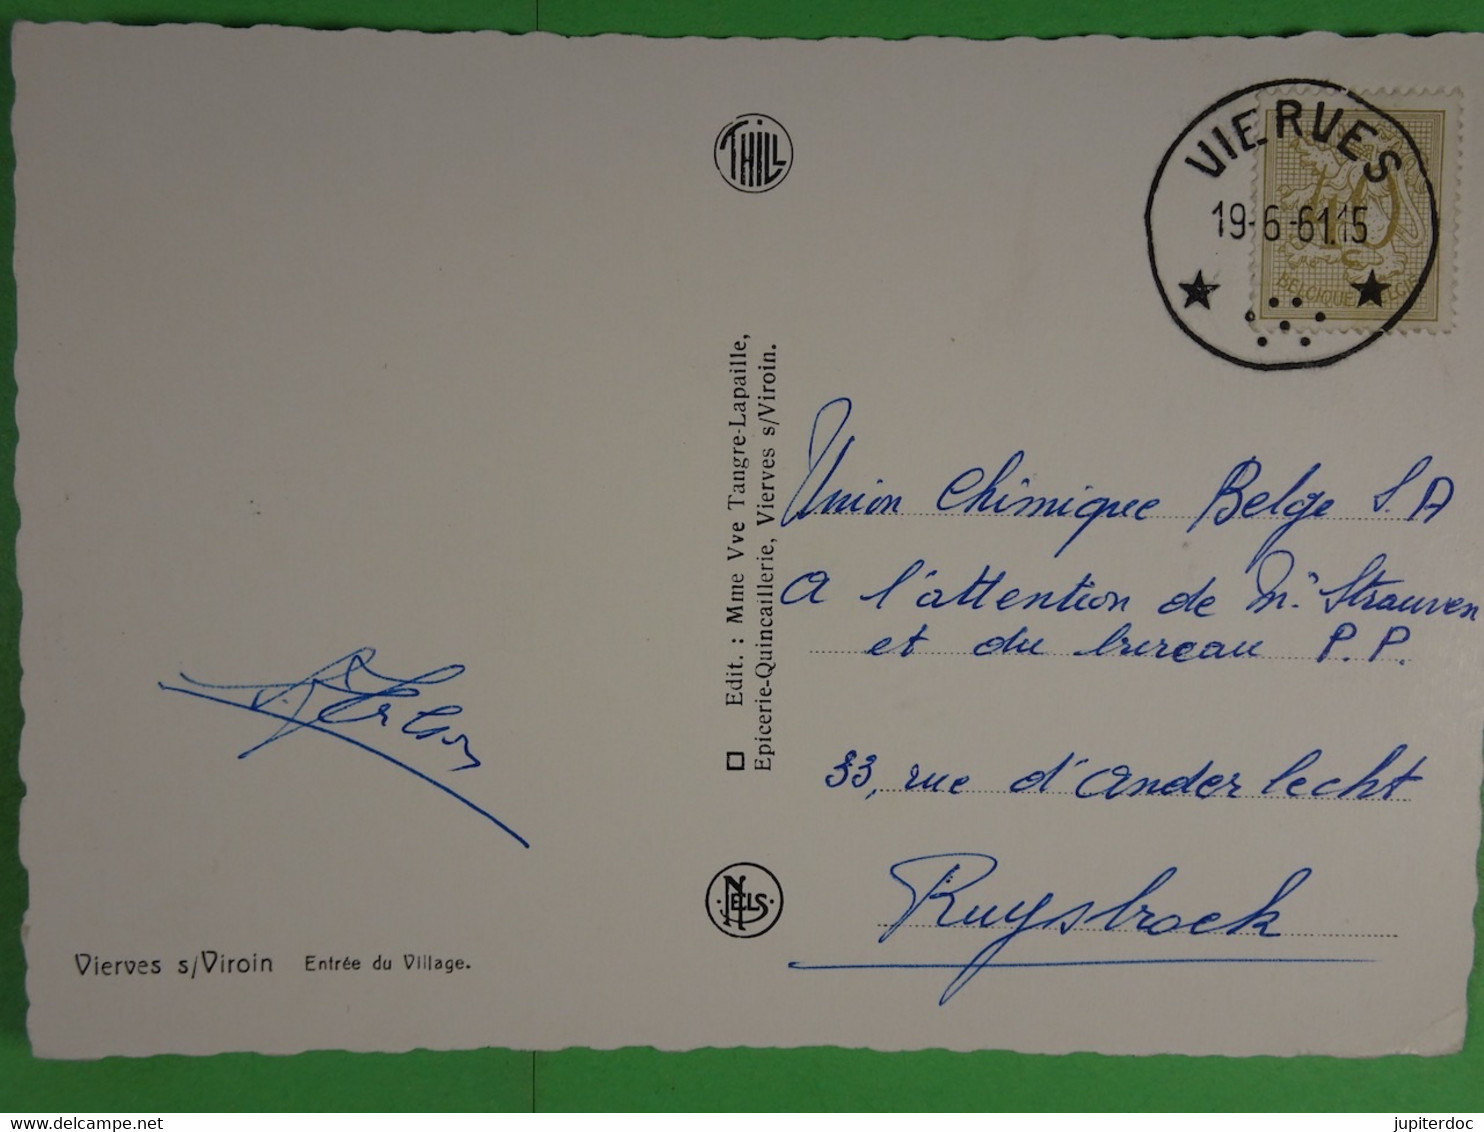 THILL
VIERVES
19-6-61.15
40
BELGIQUE BELGIE
Edit. : Mme Vve Tangre-Lapaille,
Epicerie-Quincaillerie, Vierves s/Viroin.
Union Chimique Belge S.A
A l'attention de Mr Strauven
et du bureau P.P.
33, rue d'Anderlecht
Ruysbroek
NELS
Vierves s/Viroin Entrée du Village.
www.delcampe.net
jupiterdoc